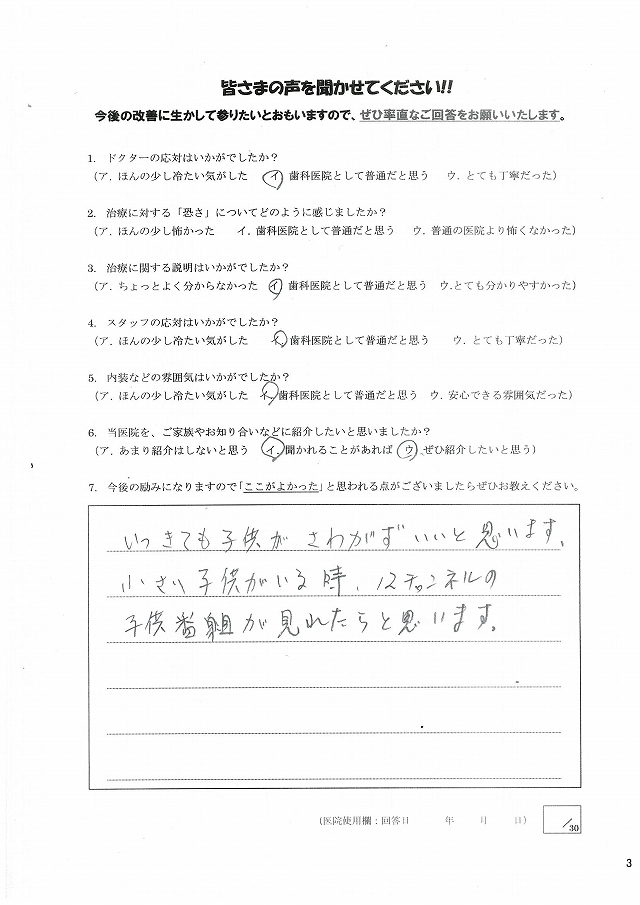 皆さまの声を聞かせてください!!
今後の改善に生かして参りたいとおもいますので、ぜひ率直なご回答をお願いいたします。
1. ドクターの応対はいかがでしたか？
（ア．ほんの少し冷たい気がした　イ．歯科医院として普通だと思う　ウ．とても丁寧だった）
2. 治療に対する「恐さ」についてどのように感じましたか？
（ア．ほんの少し怖かった　イ．歯科医院として普通だと思う　ウ．普通の医院より怖くなかった）
3. 治療に関する説明はいかがでしたか？
（ア．ちょっとよく分からなかった　イ．歯科医院として普通だと思う　ウ.とても分かりやすかった）
4. スタッフの応対はいかがでしたか？
（ア．ほんの少し冷たい気がした　イ．歯科医院として普通だと思う　ウ．とても丁寧だった）
5. 内装などの雰囲気はいかがでしたか？
（ア．ほんの少し冷たい気がした　イ．歯科医院として普通だと思う　ウ．安心できる雰囲気だった）
6. 当医院を、ご家族やお知り合いなどに紹介したいと思いましたか？
（ア．あまり紹介はしないと思う　イ．聞かれることがあれば　ウ．ぜひ紹介したいと思う）
7. 今後の励みになりますので「ここがよかった」と思われる点がございましたらぜひお教えください。
いつきても子供がさわがずいいと思います。
小さい子供がいる時、12チャンネルの
子供番組が見れたらと思います。
（医院使用欄：回答日　年　月　日）　／30
3